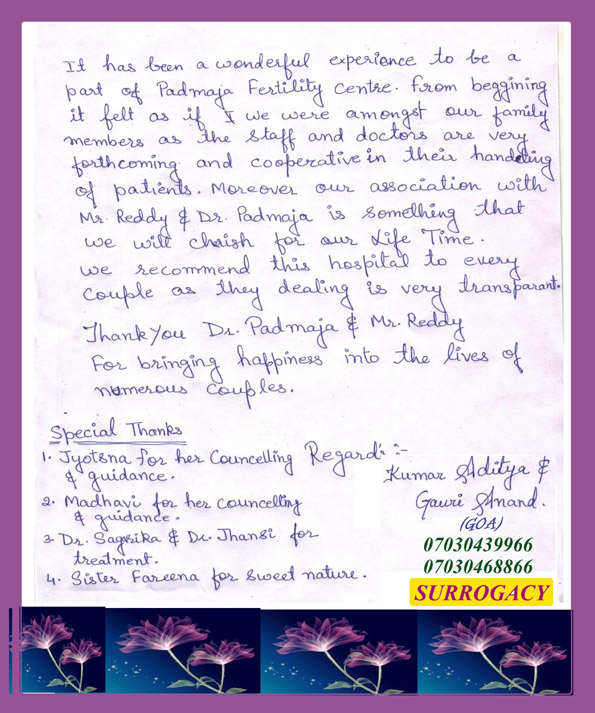 It has been a wonderful experience to be a
part of Padmaja Fertility Centre. From beggining
it felt as if I we were amongst our family
members as the staff and doctors are very
forthcoming and cooperative in their handeling
of patients. Moreover our association with
Mr. Reddy & Dr. Padmaja is something that
we will chrish for our Life Time.
we recommend this hospital to every
couple as they dealing is very transparant.
Thank You Dr. Padmaja & Mr. Reddy
For bringing happiness into the lives of
numerous couples.
Special Thanks
1. Jyotsna for her Councelling
& guidance.
2. Madhavi for her councelling
& guidance.
3. Dr. Sagrika & Dr. Jhansi for
treatment.
4. Sister Fareena for sweet nature.
Regards :-
Kumar Aditya &
Gauri Anand.
(GOA)
07030439966
07030468866
SURROGACY